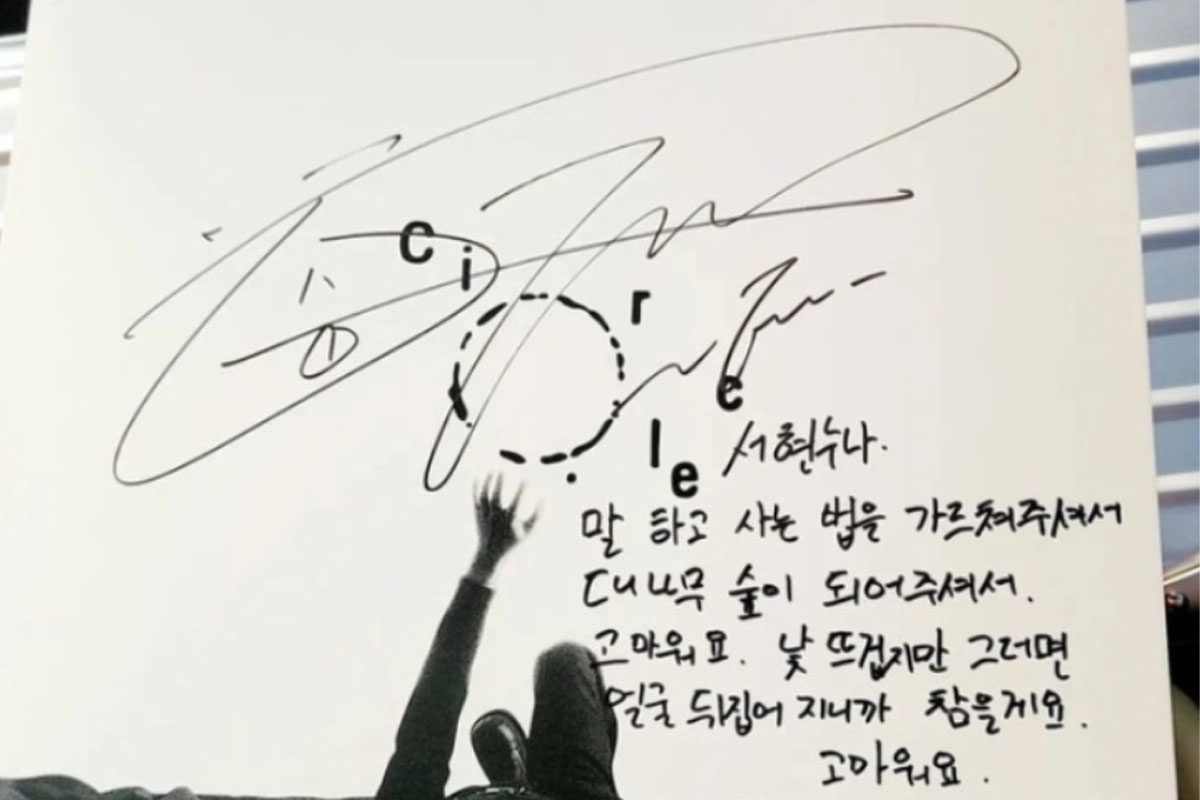 circle
서현누나.
말 하고 사는 법을 가르쳐주셔서
대나무 숲이 되어주셔서.
고마워요. 낯 뜨겁지만 그러면
얼굴 뒤집어 지니까 참을게요.
고마워요.